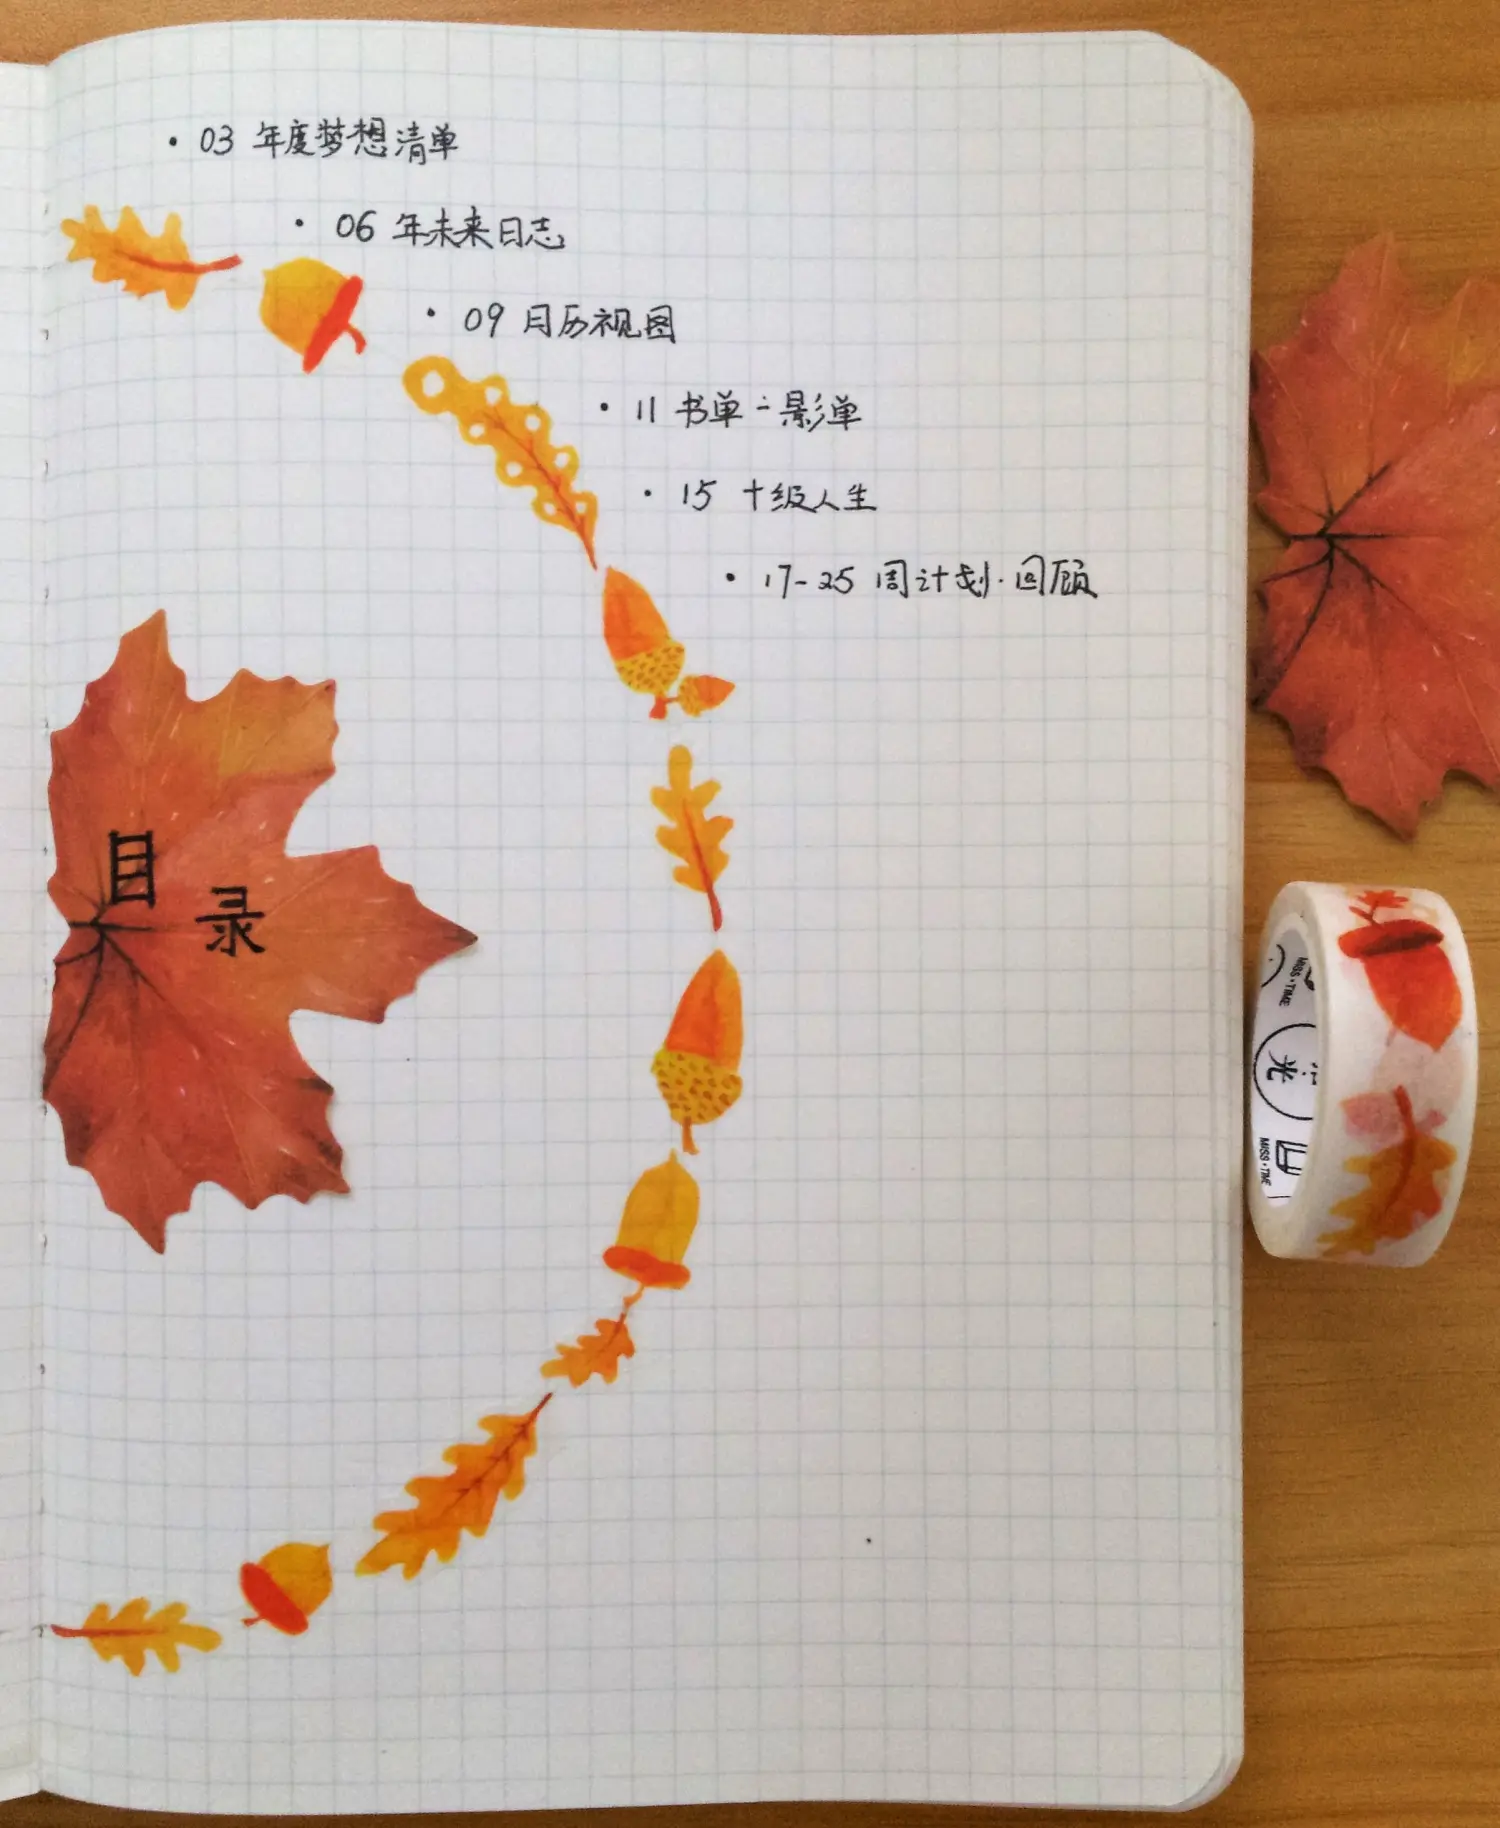 • 03 年度梦想清单
• 06 年未来日志
• 09 月历视图
• 11 书单÷影单
• 15 十级人生
• 17-25 周计划·回顾
目录
MISS·TIME
光
MISS·TIME